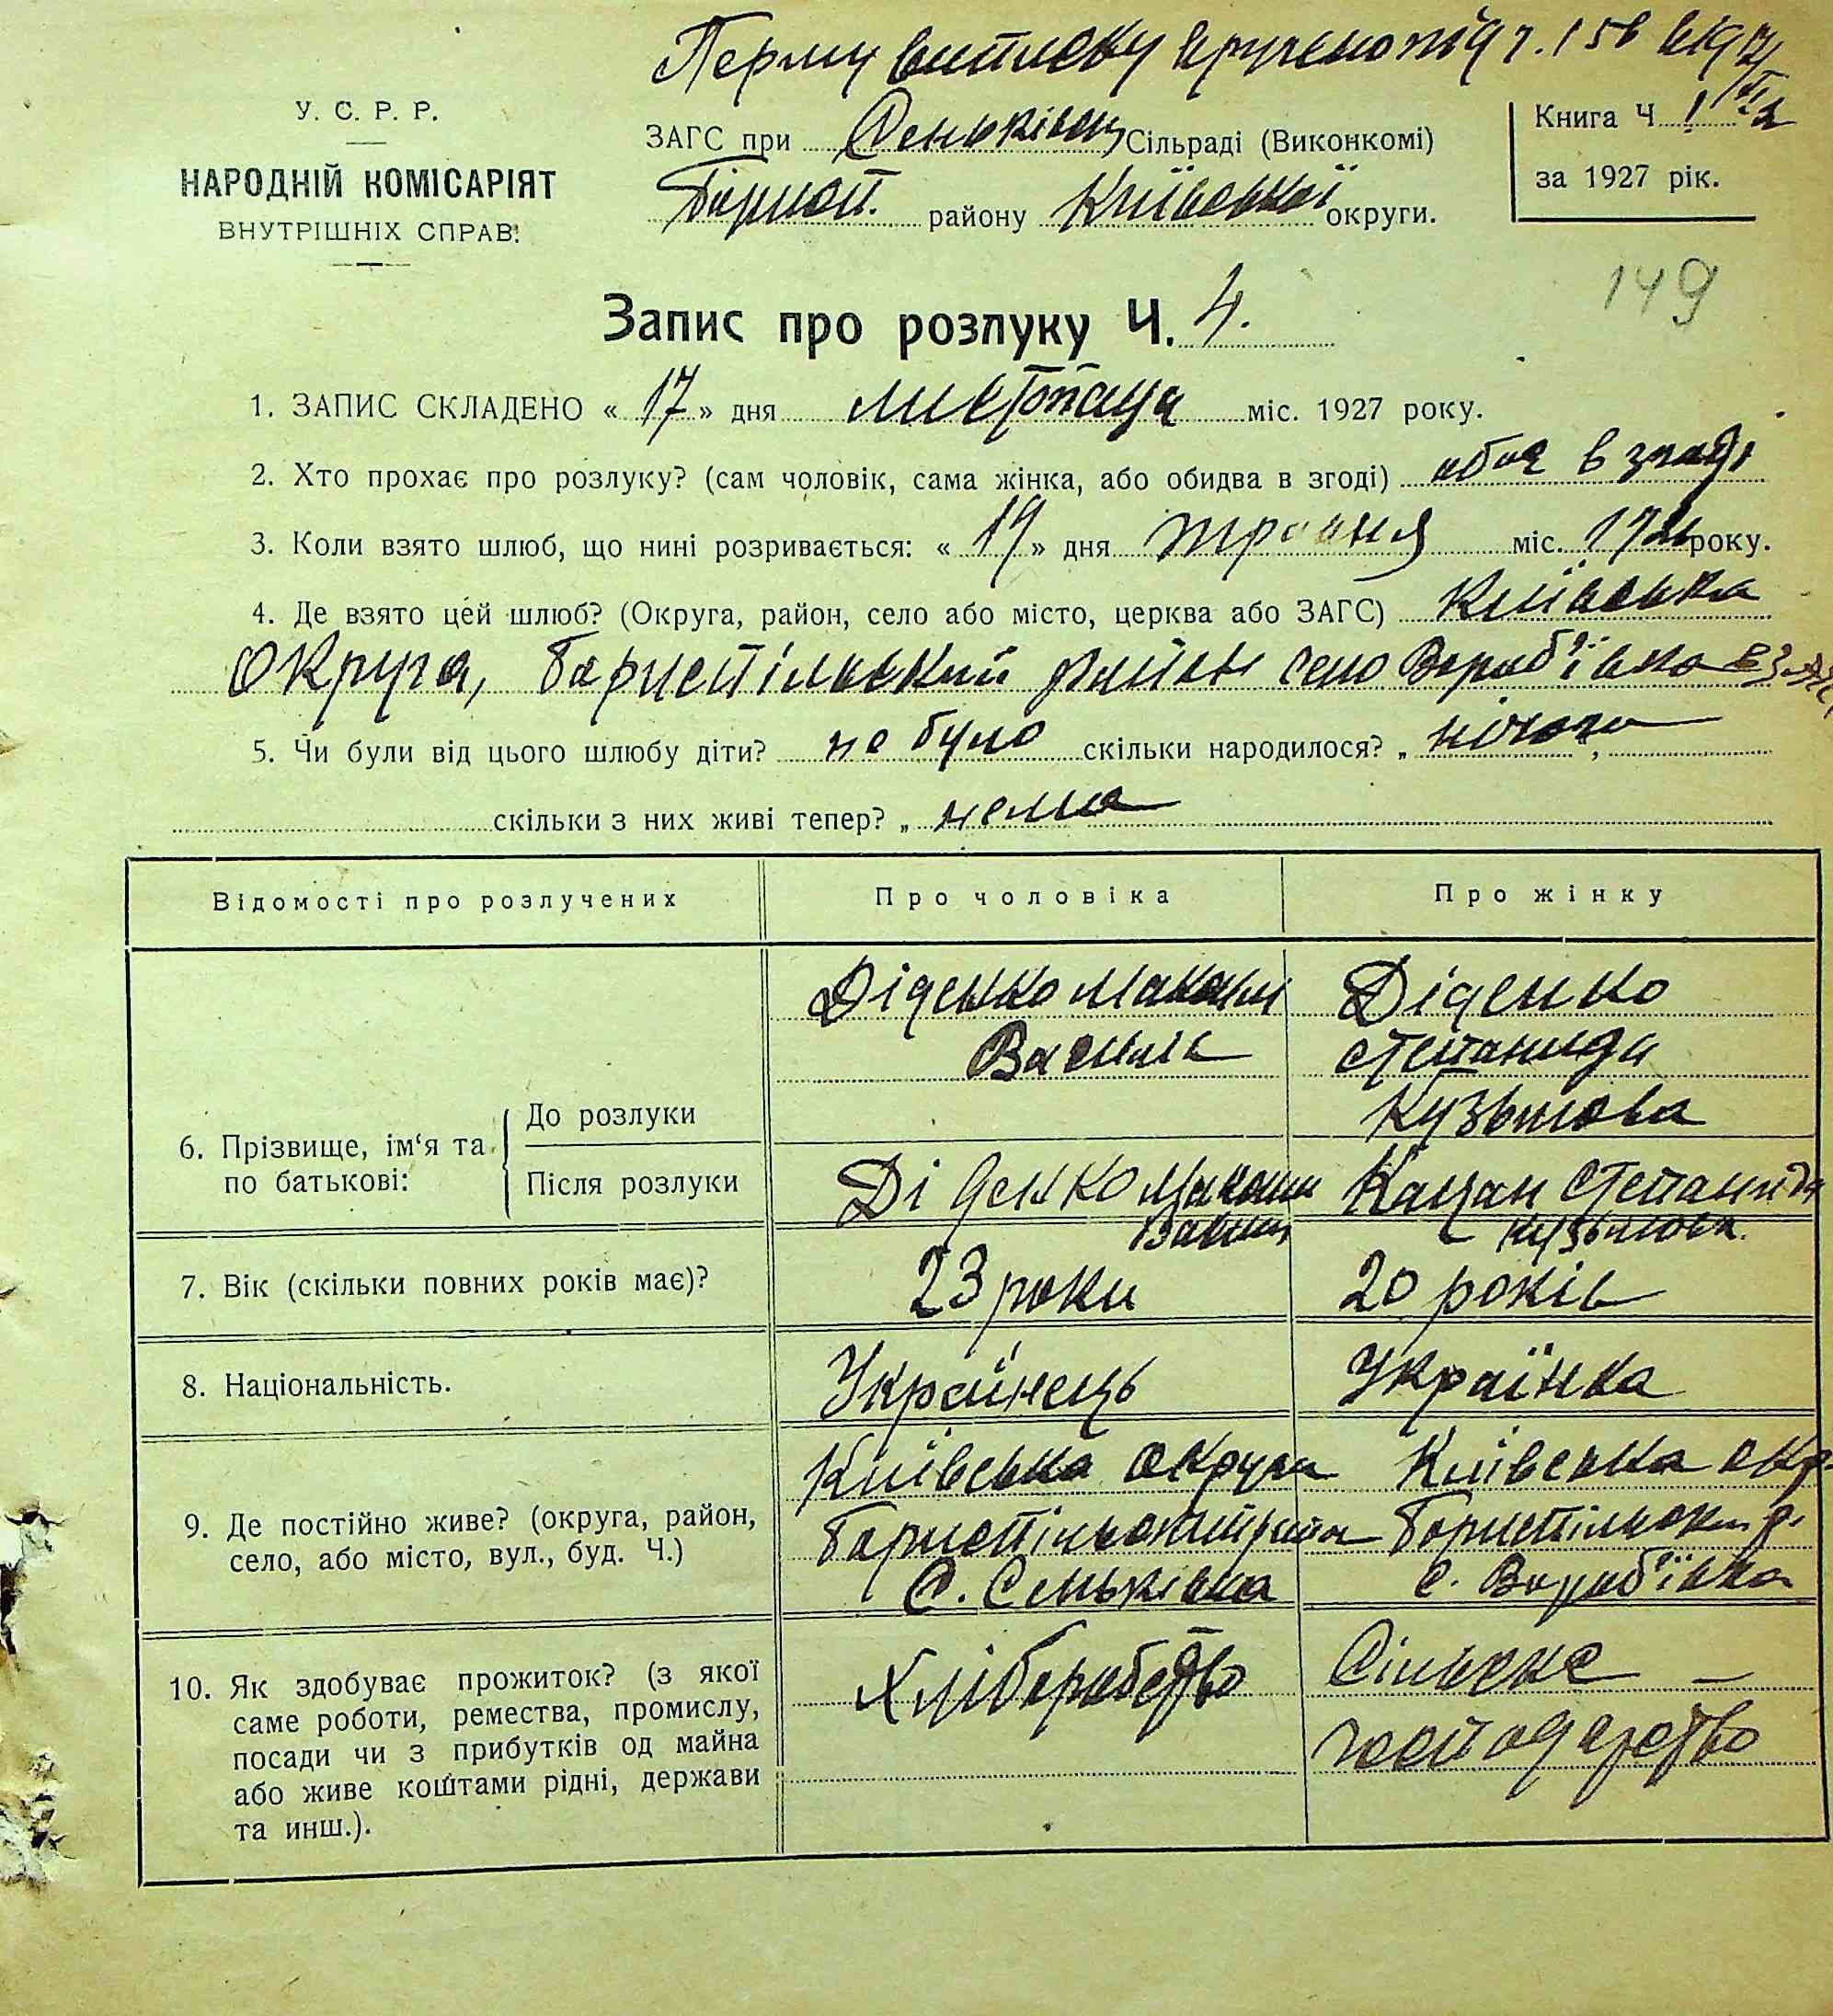 Першу виписку вручено під ч. 156
У. С. Р. Р.
НАРОДНІЙ КОМІСАРІЯТ
ВНУТРІШНІХ СПРАВ.
ЗАГС при Сеньківськ Сільраді (Виконкомі)
Борисп. району Київської округи.
Книга Ч. 1
за 1927 рік.
149
Запис про розлуку Ч. 4.
1. ЗАПИС СКЛАДЕНО « 17 » дня листопаца міс. 1927 року.
2. Хто прохає про розлуку? (сам чоловік, сама жінка, або обидва в згоді) обоє в згоді
3. Коли взято шлюб, що нині розривається: « 19 » дня травня міс. року.
4. Де взято цей шлюб? (Округа, район, село або місто, церква або ЗАГС) Київська
округа, Бориспільський район село Вороб'ївка
5. Чи були від цього шлюбу діти? не було скільки народилося? „ нічого ",
скільки з них живі тепер? „ нема
Відомості про розлучених Про чоловіка Про жінку
Діденко Максим Діденко
Василь Степанида
Кузьмова
6. Прізвище, ім'я та по батькові:
До розлуки
Після розлуки
Діденко Максим Кацан Степанида
Василь Кузьмова.
7. Вік (скільки повних років має)? 23 роки 20 років
8. Національність. Українець Українка
9. Де постійно живе? (округа, район,
село, або місто, вул., буд. Ч.)
Київська округа Київська окр.
Бориспільський район Бориспільськи р.
С. Сеньківка с. Вороб'ївка
10. Як здобуває прожиток? (з якої
саме роботи, ремества, промислу,
посади чи з прибутків од майна
або живе коштами рідні, держави
та инш.).
Хліборобство Сільське –
господарство